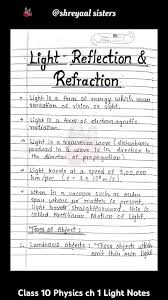 @shreyaal sisters
Light Reflection &
Refraction
→ Light is a form of energy which causes
sensation of vision or sight.
→ Light is a form of electromagnetic
radiation.
→ Light is a transverse wave (disturbance
produced in a wave is in direction to
the direction of propagation)
→ Light travels at a speed of 3,00,000
km/sec. (c = 3 x 10⁸ m/s)
→ When in a vacuum such as outer
space where no matter is present,
Light travels straight; this is
called Rectilinear Motion of Light.
Types of object :
1. Luminous objects : Those objects which
emit their own light
Class 10 Physics ch 1 Light Notes